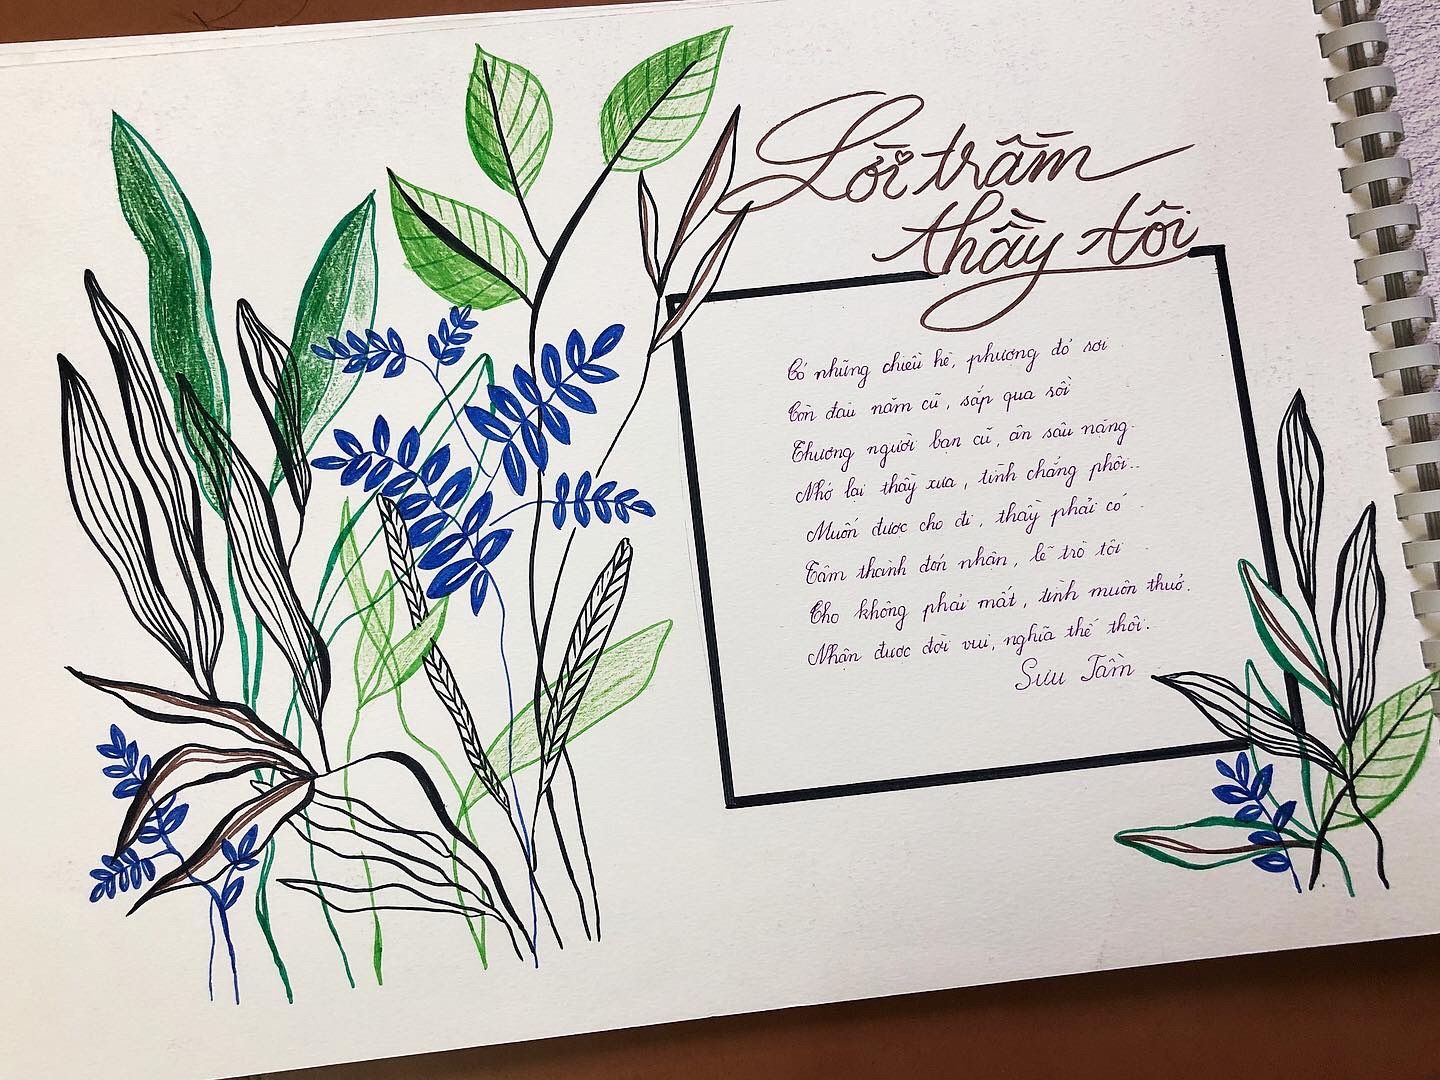 Lời trầm
thầy tôi
Có những chiều hè, phượng đỏ rơi
Còn đâu năm cũ, sắp qua rồi
Thương người bạn cũ, ân sâu nặng.
Nhớ lại thầy xưa, tình chẳng phôi..
Muốn được cho đi, thầy phải có
Tâm thành đón nhận, lẽ trò tôi
Cho không phải mất, tình muôn thuở.
Nhận được đời vui, nghĩa thế thôi.
Sưu Tầm